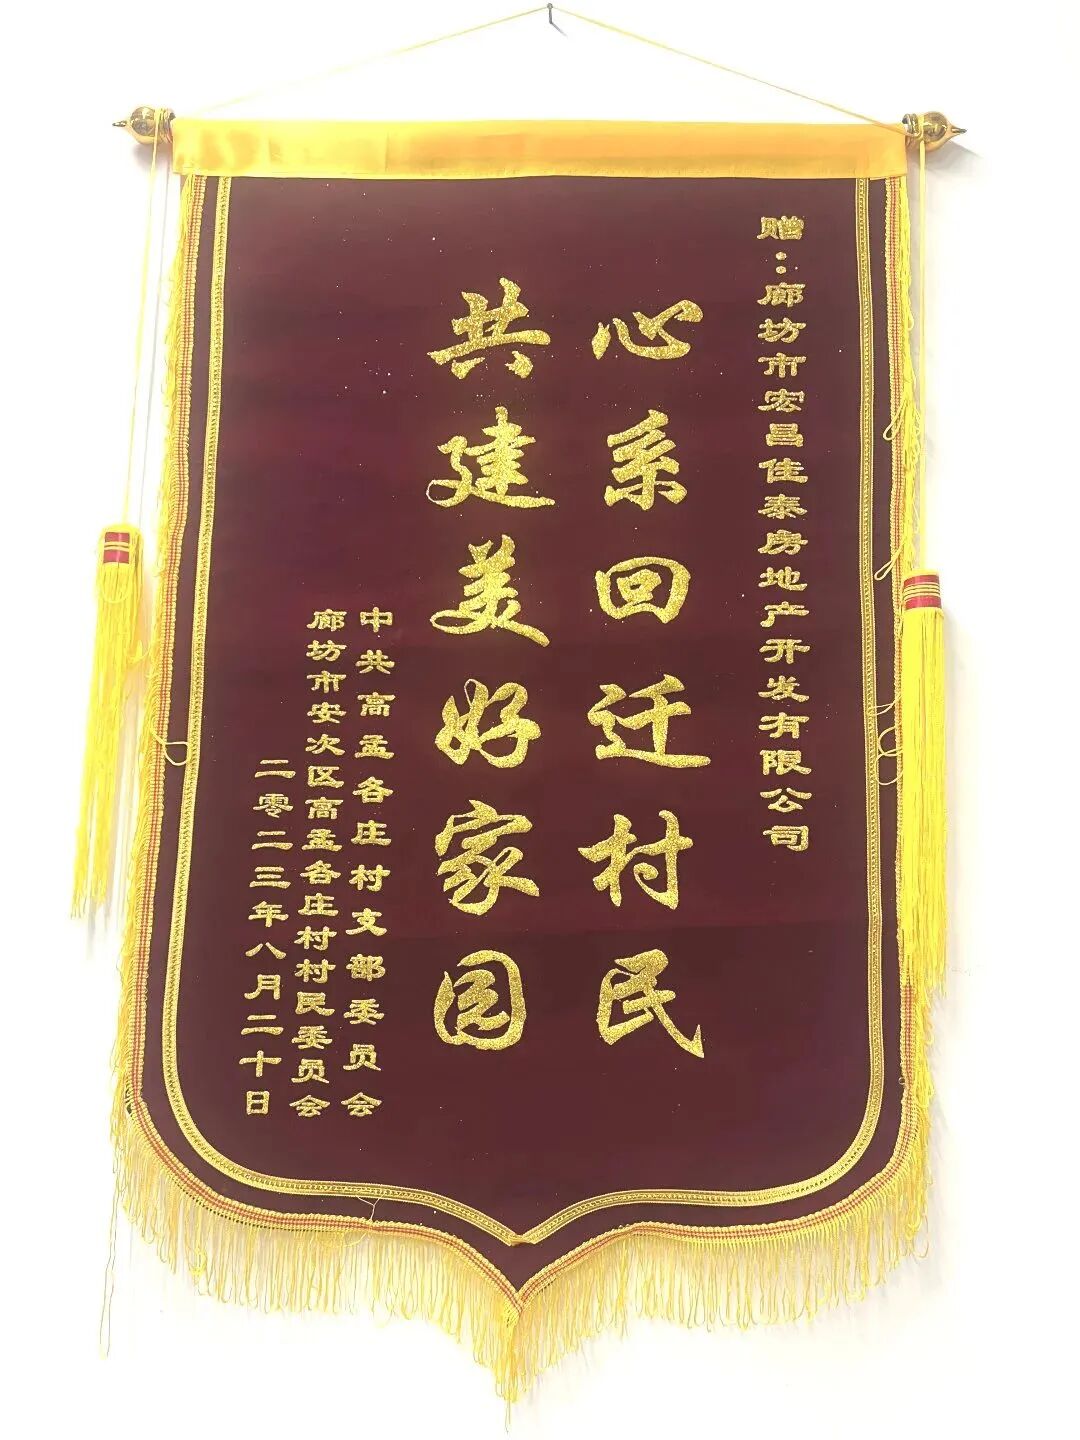 赠：廊坊市宏昌佳泰房地产开发有限公司
心系回迁村民
共建美好家园
中共高孟各庄村支部委员会
廊坊市安次区高孟各庄村村民委员会
二零二三年八月二十日